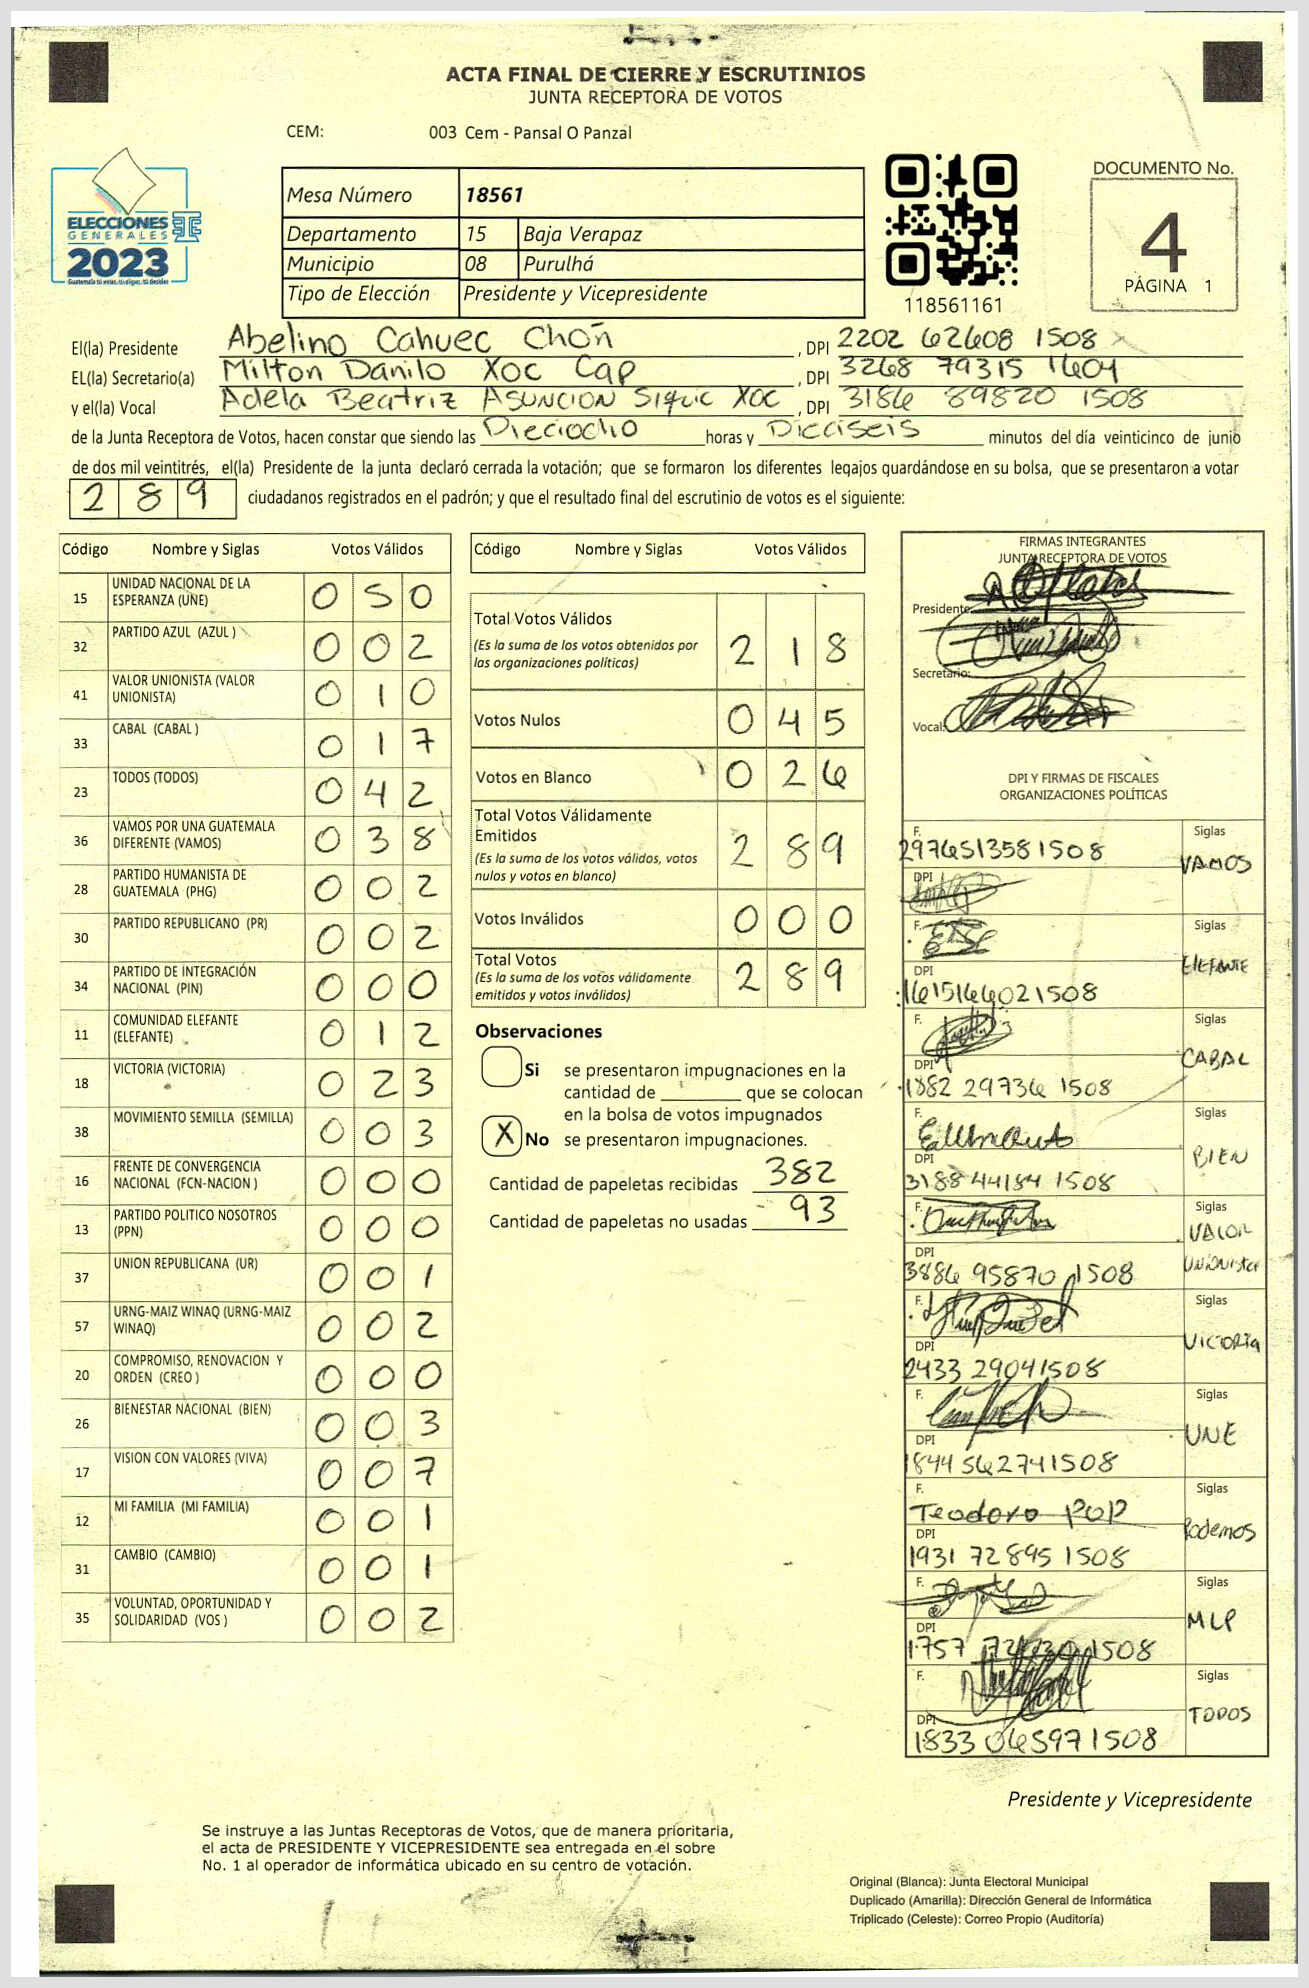 ACTA FINAL DE CIERRE Y ESCRUTINIOS
JUNTA RECEPTORA DE VOTOS
CEM: 003 Cem - Pansal O Panzal
ELECCIONES
GENERALES
2023
Mesa Número 18561
Departamento 15 Baja Verapaz
Municipio 08 Purulhá
Tipo de Elección Presidente y Vicepresidente
118561161
DOCUMENTO No.
4
PÁGINA 1
El(la) Presidente Abelino Cahuec Choñ , DPI 2202 62608 1508
EL(la) Secretario(a) Milton Danilo Xoc Cap , DPI 3268 79315 1604
y el(la) Vocal Adela Beatriz ASUNCION Siquic XOC , DPI 3186 89820 1508
de la Junta Receptora de Votos, hacen constar que siendo las Dieciocho horas y Dieciseis minutos del día veinticinco de junio
de dos mil veintitrés, el(la) Presidente de la junta declaró cerrada la votación; que se formaron los diferentes legajos guardándose en su bolsa, que se presentaron a votar
289 ciudadanos registrados en el padrón; y que el resultado final del escrutinio de votos es el siguiente:
Código Nombre y Siglas Votos Válidos
15 UNIDAD NACIONAL DE LA ESPERANZA (UNE) 050
32 PARTIDO AZUL (AZUL ) 002
41 VALOR UNIONISTA (VALOR UNIONISTA) 010
33 CABAL (CABAL ) 017
23 TODOS (TODOS) 042
36 VAMOS POR UNA GUATEMALA DIFERENTE (VAMOS) 038
28 PARTIDO HUMANISTA DE GUATEMALA (PHG) 002
30 PARTIDO REPUBLICANO (PR) 002
34 PARTIDO DE INTEGRACIÓN NACIONAL (PIN) 000
11 COMUNIDAD ELEFANTE (ELEFANTE) 012
18 VICTORIA (VICTORIA) 023
38 MOVIMIENTO SEMILLA (SEMILLA) 003
16 FRENTE DE CONVERGENCIA NACIONAL (FCN-NACION ) 000
13 PARTIDO POLITICO NOSOTROS (PPN) 000
37 UNION REPUBLICANA (UR) 001
57 URNG-MAIZ WINAQ (URNG-MAIZ WINAQ) 002
20 COMPROMISO, RENOVACION Y ORDEN (CREO ) 000
26 BIENESTAR NACIONAL (BIEN) 003
17 VISION CON VALORES (VIVA) 007
12 MI FAMILIA (MI FAMILIA) 001
31 CAMBIO (CAMBIO) 001
35 VOLUNTAD, OPORTUNIDAD Y SOLIDARIDAD (VOS ) 002
Código Nombre y Siglas Votos Válidos
Total Votos Válidos 218
(Es la suma de los votos obtenidos por
las organizaciones políticos)
Votos Nulos 045
Votos en Blanco 026
Total Votos Válidamente
Emitidos 289
(Es la suma de los votos válidos, votos
nulos y votos en blanco)
Votos Inválidos 000
Total Votos 289
(Es la suma de los votos válidamente
emitidos y votos inválidos)
Observaciones
Si se presentaron impugnaciones en la
cantidad de ________ que se colocan
en la bolsa de votos impugnados
X No se presentaron impugnaciones.
Cantidad de papeletas recibidas 382
Cantidad de papeletas no usadas 93
FIRMAS INTEGRANTES
JUNTA RECEPTORA DE VOTOS
Presidente:
Secretario:
Vocal:
DPI Y FIRMAS DE FISCALES
ORGANIZACIONES POLÍTICAS
F. 2976513581508 Siglas VAMOS
DPI
F. Siglas ElEFANTE
DPI 1615166021508
F. Siglas CABAL
DPI 1882 29736 1508
F. Siglas BIEN
DPI 3188 44184 1508
F. Siglas VALOR UNiONista
DPI 3886 95870 1508
F. Siglas VICTORIA
DPI 2433 29041508
F. Siglas UNE
DPI 1844 562741508
F. Teodoro POP Siglas Podemos
DPI 1931 72895 1508
F. Siglas MLP
DPI
F. Siglas TODOS
DPI 1833 065971508
Presidente y Vicepresidente
Se instruye a las Juntas Receptoras de Votos, que de manera prioritaria,
el acta de PRESIDENTE Y VICEPRESIDENTE sea entregada en el sobre
No. 1 al operador de informática ubicado en su centro de votación.
Original (Blanca): Junta Electoral Municipal
Duplicado (Amarilla): Dirección General de Informática
Triplicado (Celeste): Correo Propio (Auditoría)